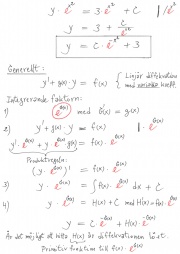 y · e^(x²) = 3 · e^(x²) + C | / e^(x²)
y = 3 + C/e^(x²)
y = C · e^(-x²) + 3
Generellt:
y' + g(x) · y = f(x) { Linjär diffekvation med variabla koeff.
Integrerande faktorn:
1) e^(G(x)) med G'(x) = g(x)
2) y' + g(x) · y = f(x) | · e^(G(x))
y' · e^(G(x)) + y · g(x) · e^(G(x)) = f(x) · e^(G(x))
Produktregeln:
(y · e^(G(x)))' = f(x) · e^(G(x))
3) y · e^(G(x)) = ∫ f(x) · e^(G(x)) dx + C
4) y · e^(G(x)) = H(x) + C med H'(x) = f(x) · e^(G(x))
y = C · e^(-G(x)) + H(x) · e^(-G(x))
Är det möjligt att hitta H(x) är diffekvationen löst.
Primitiv funktion till f(x) · e^(G(x))